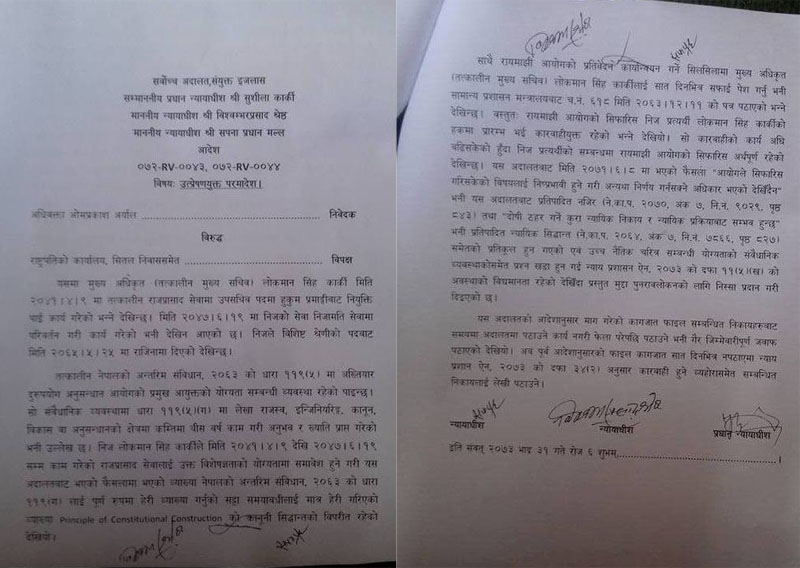 सर्वोच्च अदालत,संयुक्त इजलास
सम्माननीय प्रधान न्यायाधीश श्री सुशीला कार्की
माननीय न्यायाधीश श्री विश्वम्भरप्रसाद श्रेष्ठ
माननीय न्यायाधीश श्री सपना प्रधान मल्ल
आदेश
०७२-RV-००४३, ०७२-RV-००४४
विषयः उत्प्रेषणयुक्त परमादेश।
अधिवक्ता ओमप्रकाश अर्याल ........................................ निवेदक
विरुद्ध
राष्ट्रपतिको कार्यालय, सितल निवाससमेत ........................................ विपक्ष
यसमा मुख्य अधिकृत (तत्कालीन मुख्य सचिव) लोकमान सिंह कार्की मिति
२०४१।४।९ मा तत्कालीन राजप्रासाद सेवामा उपसचिव पदमा हुकुम प्रमाङ्गीबाट नियुक्ति
पाई कार्य गरेको भन्ने देखिन्छ। मिति २०४७।६।१९ मा निजको सेवा निजामति सेवामा
परिवर्तन गरी कार्य गरेको भनी देखिन आएको छ। निजले विशिष्ट श्रेणीको पदबाट
मिति २०६५।५।२५ मा राजिनामा दिएको देखिन्छ।
तत्कालीन नेपालको अन्तरिम संविधान, २०६३ को धारा ११९(५) मा अख्तियार
दुरुपयोग अनुसन्धान आयोगको प्रमुख आयुक्तको योग्यता सम्बन्धी व्यवस्था रहेको पाइन्छ।
सो संवैधानिक व्यवस्थामा धारा ११९(५)(ग) मा लेखा राजस्व, इन्जिनियरिङ, कानून,
विकास वा अनुसन्धानको क्षेत्रमा कम्तिमा बीस वर्ष काम गरी अनुभव र ख्याति प्राप्त गरेको
भनी उल्लेख छ। निज लोकमान सिंह कार्कीले मिति २०४१।४।९ देखि २०४७।६।१९
सम्म काम गरेको राजप्रासाद सेवालाई उक्त विशेषज्ञताको योग्यतामा समावेश हुने गरी यस
अदालतबाट भएको फैसलामा भएको व्याख्या नेपालको अन्तरिम संविधान, २०६३ को धारा
११९(ग) लाई पूर्ण रुपमा हेरी व्याख्या गर्नुको सट्टा समयावधीलाई मात्र हेरी गरिएको
व्याख्या Principle of Constitutional Construction को कानूनी सिद्धान्तको विपरीत रहेको
देखियो।
साथै रायमाझी आयोगको प्रतिवेदन कार्यान्वयन गर्ने सिलसिलामा मुख्य अधिकृत
(तत्कालीन मुख्य सचिव) लोकमान सिंह कार्कीलाई सात दिनभित्र सफाई पेश गर्नु भनी
सामान्य प्रशासन मन्त्रालयबाट च.नं. ६१८ मिति २०६३।१२।११ को पत्र पठाएको भन्ने
देखिन्छ। वस्तुतः रायमाझी आयोगको सिफारिस निज प्रत्यर्थी लोकमान सिंह कार्कीको
हकमा प्रारम्भ भई कारवाहीयुक्त रहेको भन्ने देखियो। सो कारवाहीको कार्य अघि
बढिसकेको हुँदा निज प्रत्यर्थीको सम्बन्धमा रायमाझी आयोगको सिफारिस अर्थपूर्ण रहेको
देखिन्छ। यस अदालतबाट मिति २०७१।६।८ मा भएको फैसला "आयोगले सिफारिस
गरिसकेको विषयलाई निष्प्रभावी हुने गरी अन्यथा निर्णय गर्नसक्ने अधिकार भएको देखिँदैन"
भनी यस अदालतबाट प्रतिपादित नजिर (ने.का.प. २०७०, अंक ७, नि.नं. ९०२९, पृष्ठ
८४३) तथा "दोषी ठहर गर्ने कुरा न्यायिक निकाय र न्यायिक प्रक्रियाबाट सम्भव हुन्छ"
भनी प्रतिपादित न्यायिक सिद्धान्त (ने.का.प. २०६४, अंक ७, नि.नं. ७८६६, पृष्ठ ८२७)
समेतको प्रतिकूल हुन गएको एवं उच्च नैतिक चरित्र सम्बन्धी योग्यताको संवैधानिक
व्यवस्थाकोसमेत प्रश्न खडा हुन गई न्याय प्रशासन ऐन, २०७३ को दफा ११(५)(ख) को
अवस्थाको विद्यमानता रहेको देखिँदा प्रस्तुत मुद्दा पुनरावलोकनको लागि निस्सा प्रदान गरी
दिइएको छ।
यस अदालतको आदेशानुसार माग गरेको कागजात फाइल सम्बन्धित निकायहरुबाट
समयमा अदालतमा पठाउने कार्य नगरी फेला परेपछि पठाउने भनी गैर जिम्मेवारीपूर्ण जवाफ
पठाएको देखियो। अब पूर्व आदेशानुसारको फाइल कागजात सात दिनभित्र नपठाएमा न्याय
प्रशान ऐन, २०७३ को दफा ३४(२) अनुसार कारबाही हुने व्यहोरासमेत सम्बन्धित
निकायलाई लेखी पठाउने।
न्यायाधीश न्यायाधीश प्रधान न्यायाधीश
इति संवत् २०७३ भाद्र ३१ गते रोज ६ शुभम्........................................।